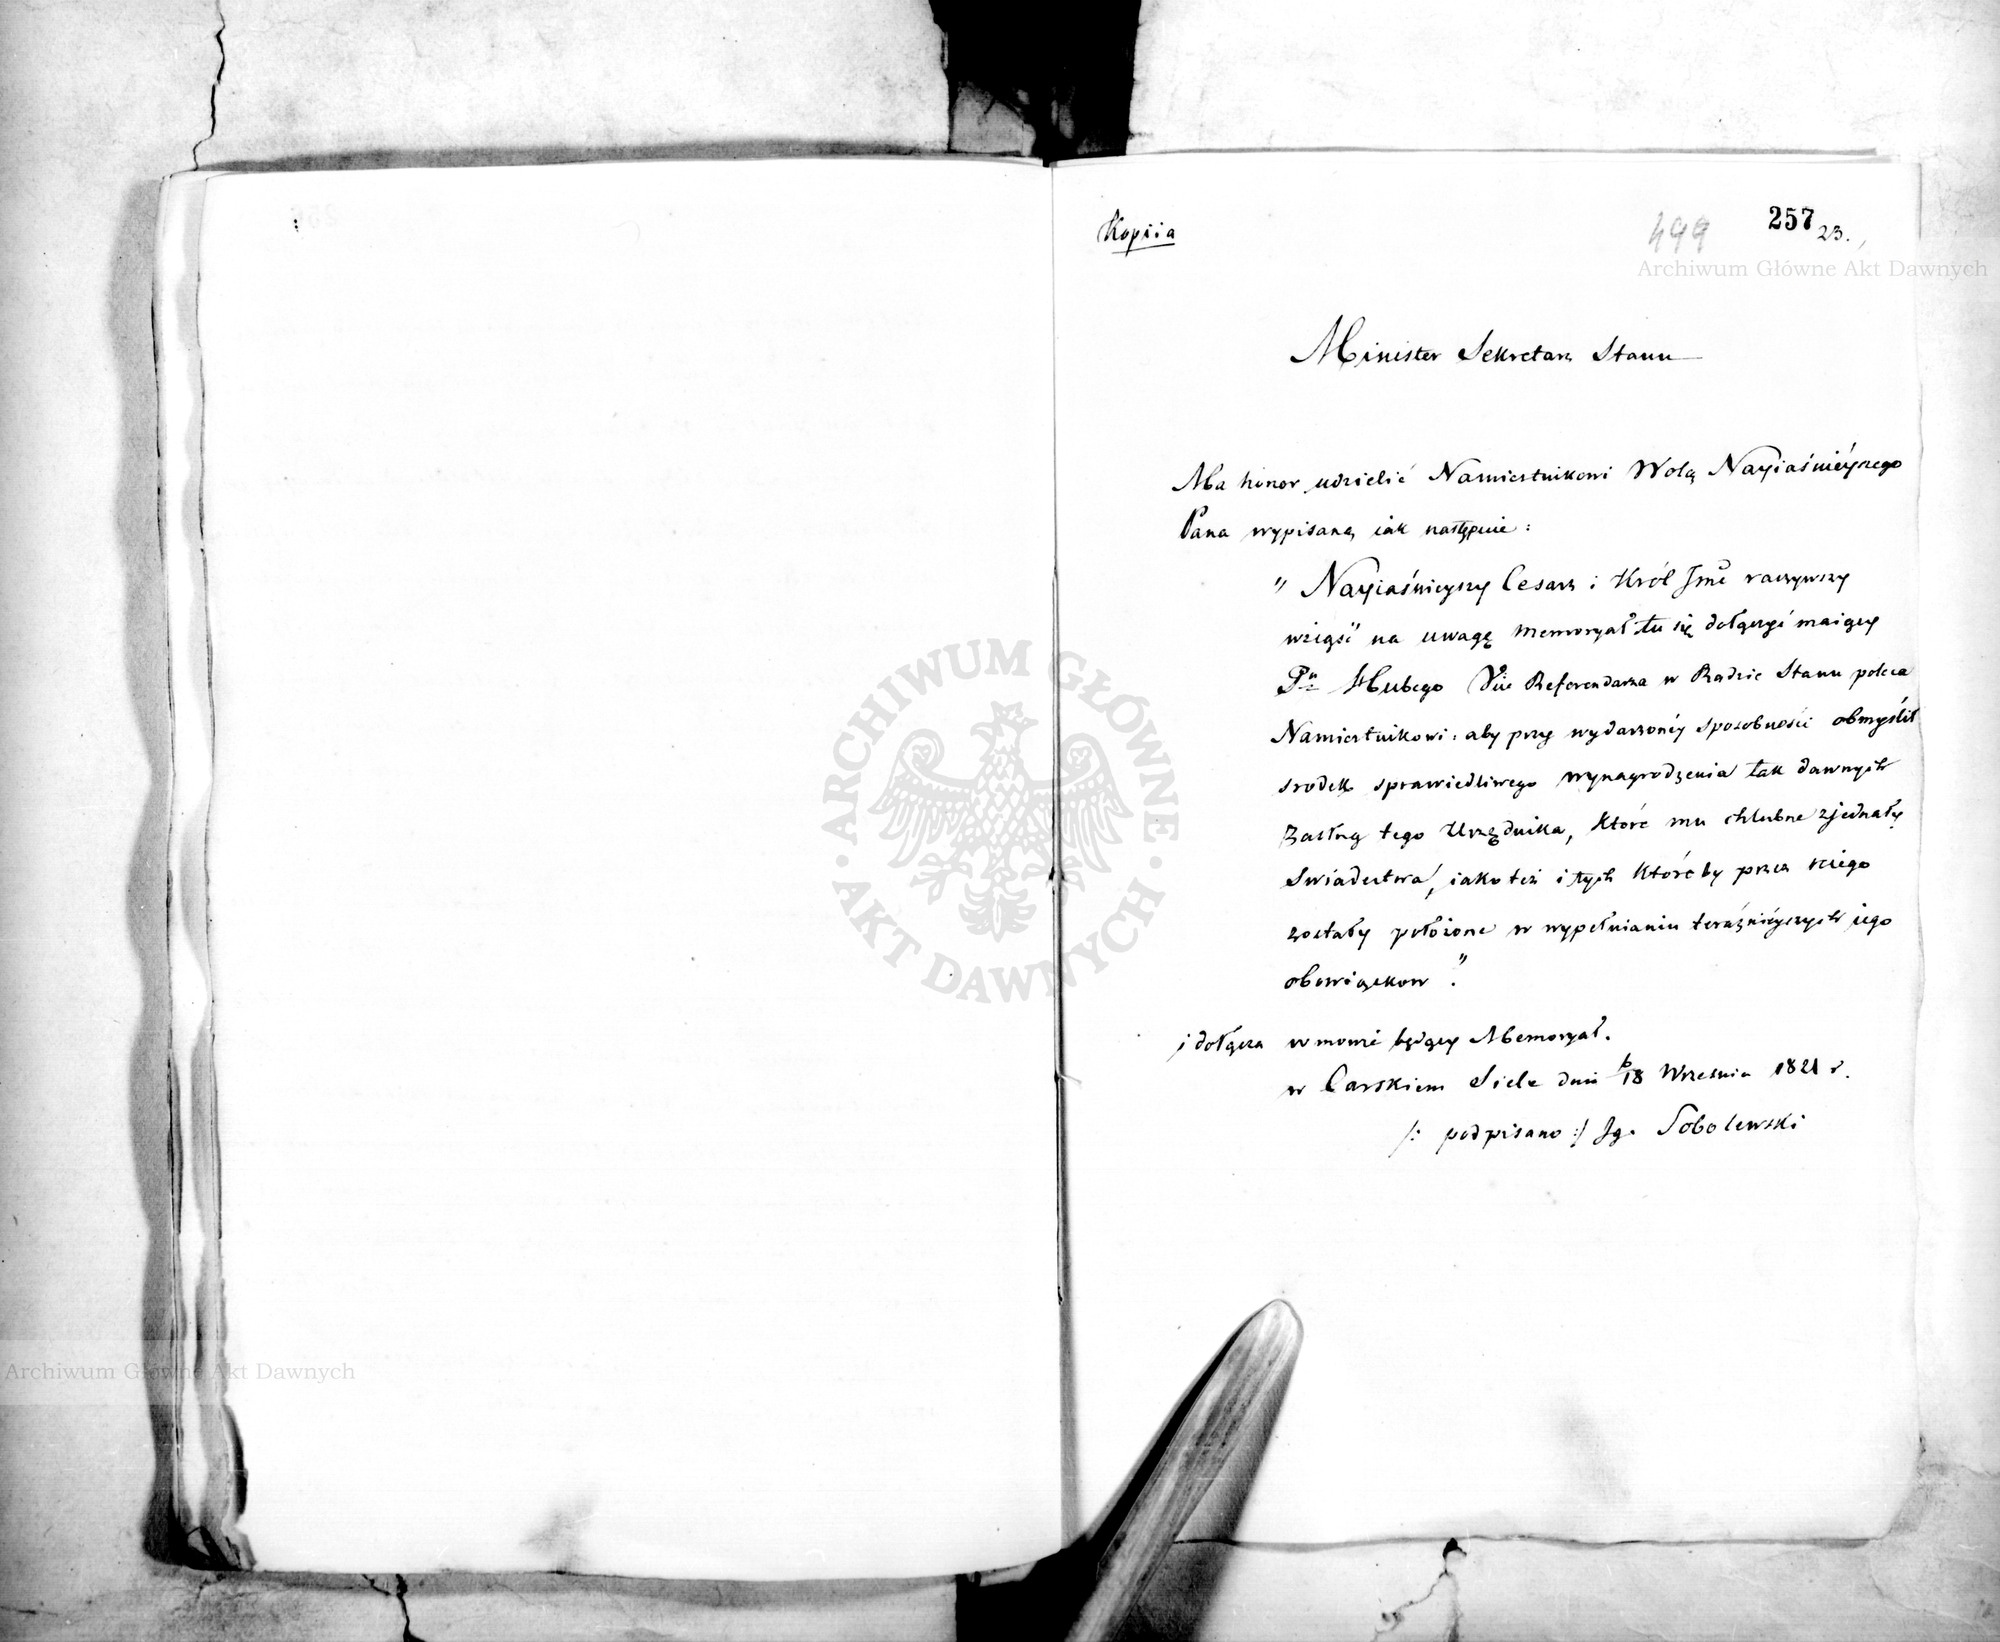 Kopiia
499 257 23.
Archiwum Główne Akt Dawnych
Minister Sekretarz Stanu
Ma honor udzielić Namiestnikowi Wolą Nayiaśnieyszego
Pana wypisaną iak następuie:
" Nayiaśnieyszy Cesarz i Król Jmć raczywszy
wziąść na uwagę memoryał tu się dołączyć maiący
Pna Hubego Vice Referendarza w Radzie Stanu poleca
Namiestnikowi: aby przy wydarzonéy sposobności obmyślił
srodek sprawiedliwego wynagrodzenia tak dawnych
Zasług tego Urzędnika, które mu chlubne zjednały
Swiadectwa, iako też i tych któreby przez niego
zostały położone w wypełnianiu teraźnieyszych iego
obowiązkow ".
i dołącza w mowie będący Memoryał.
w Carskiem Siele dnia 6/18 Września 1821 r.
/: podpisano :/ Ig. Sobolewski
ARCHIWUM GŁÓWNE
AKT DAWNYCH
Archiwum Główne Akt Dawnych